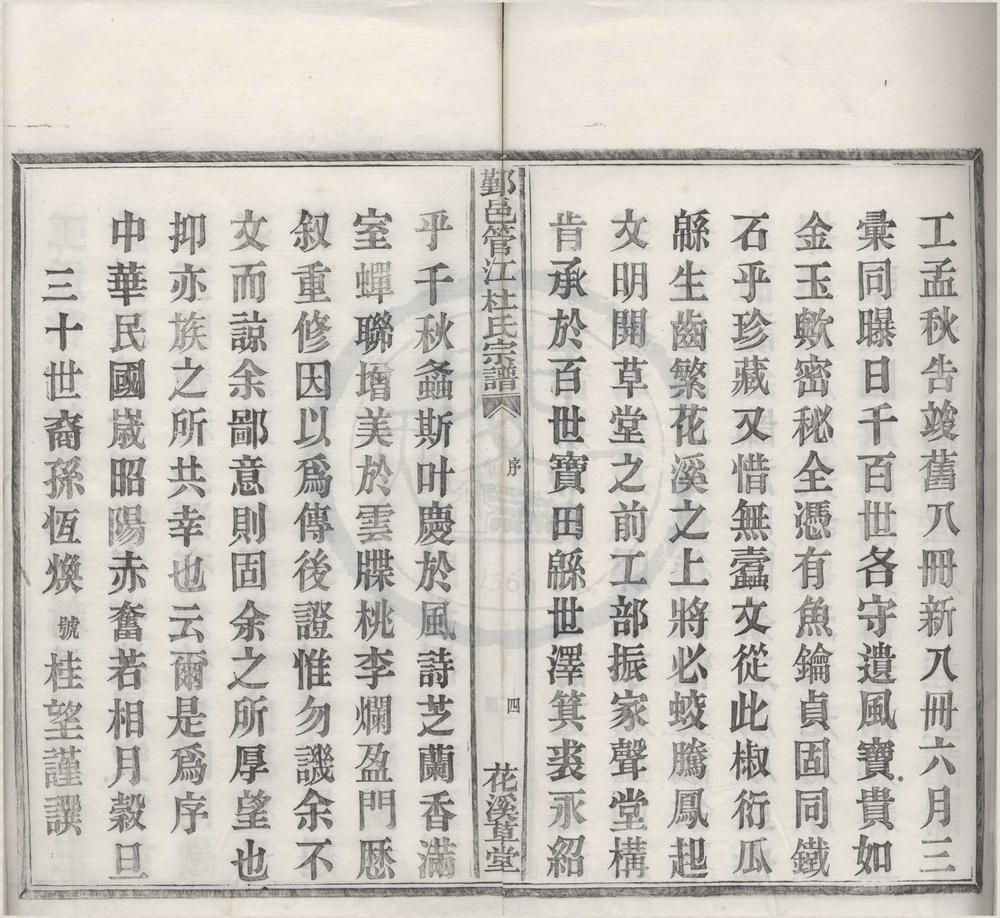 工孟秋告竣舊八冊新八冊六月三
彙同曝日千百世各守遺風寶貴如
金玉歟密秘全憑有魚鑰貞固同鐵
石乎珍藏又惜無蠹文從此椒衍瓜
緜生齒繁花溪之上將必蛟騰鳳起
文明開草堂之前工部振家聲堂構
肯承於百世寶田緜世澤箕裘永紹
鄞邑管江杜氏宗譜
序
四
花溪草堂
乎千秋螽斯叶慶於風詩芝蘭香滿
室蟬聯增美於雲牒桃李爛盈門歷
叙重修因以爲傳後證惟勿譏余不
文而諒余鄙意則固余之所厚望也
抑亦族之所共幸也云爾是爲序
中華民國歲昭陽赤奮若相月穀旦
三十世裔孫恆煥號桂望謹譔